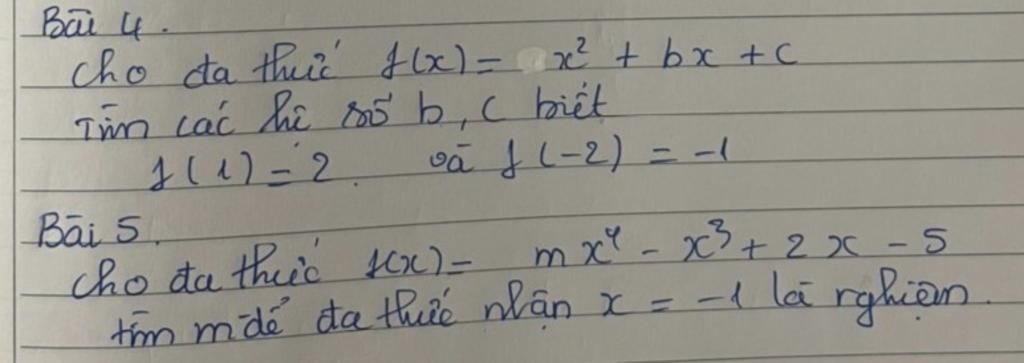 Bài 4.
Cho đa thức f(x) = x² + bx + c
Tìm các hệ số b, c biết
f(1) = 2. và f(-2) = -1
Bài 5.
Cho đa thức f(x) = mx⁴ - x³ + 2x - 5
tìm m để đa thức nhận x = -1 là nghiệm.